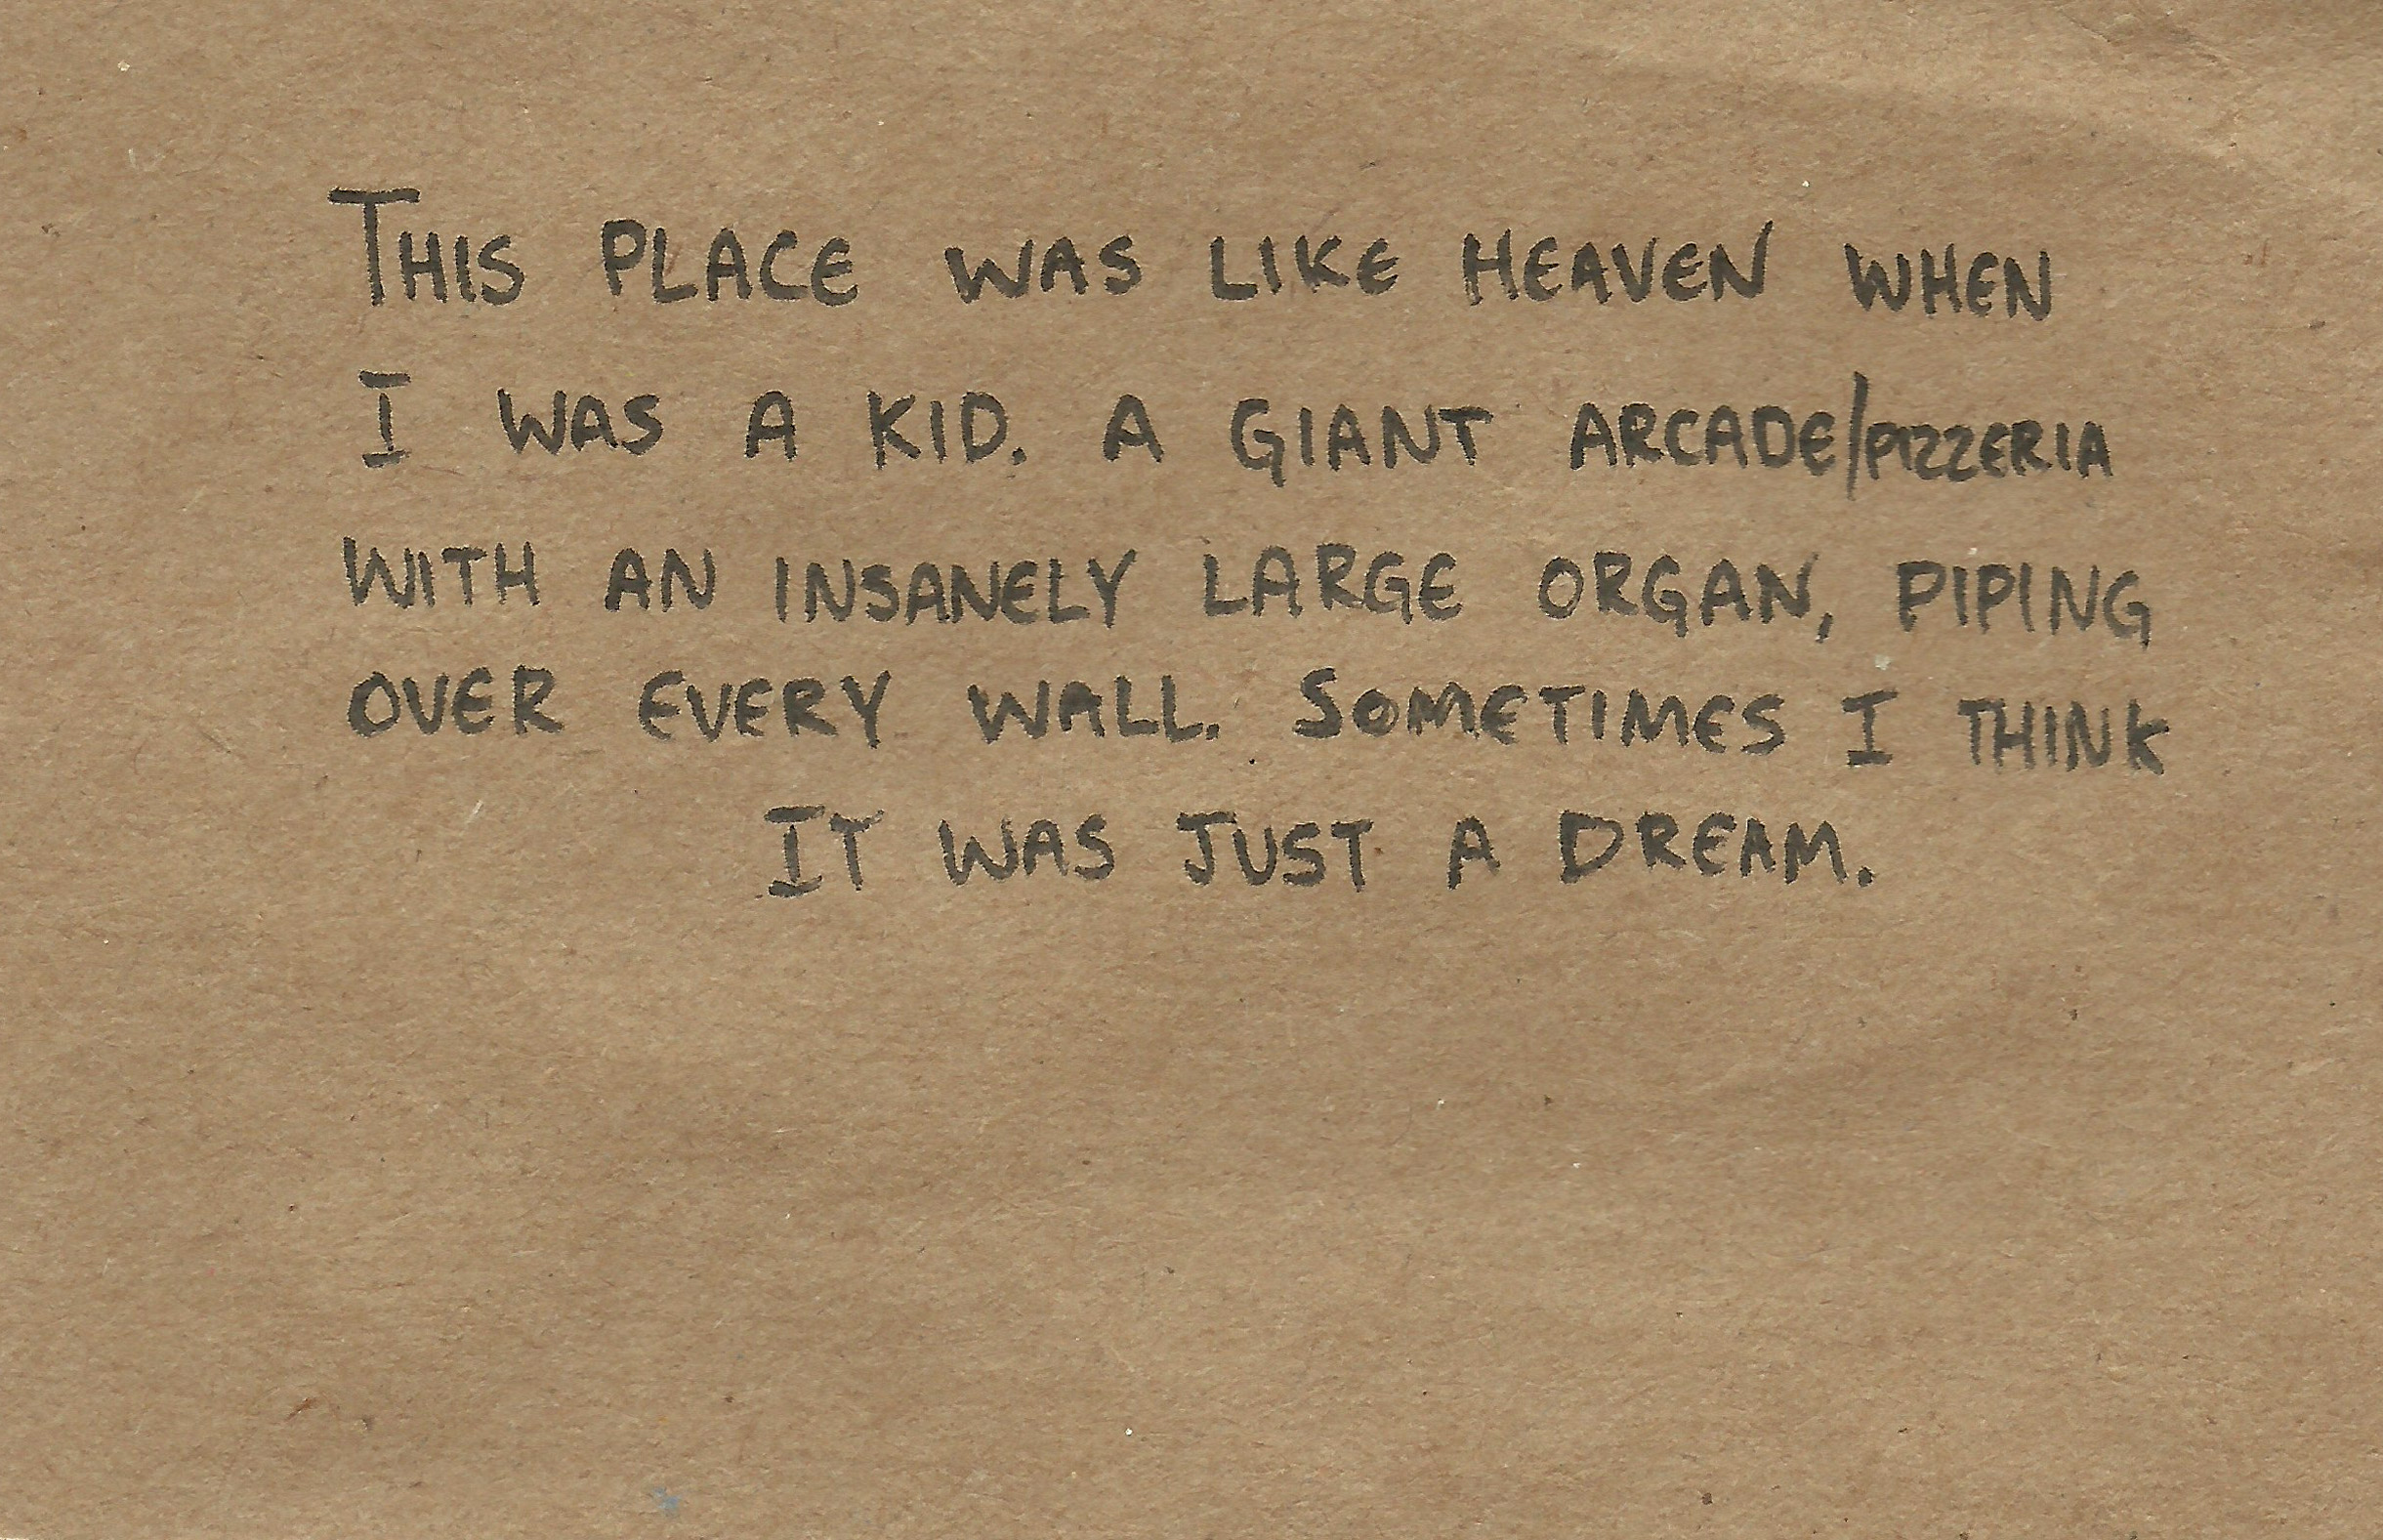 THIS PLACE WAS LIKE HEAVEN WHEN
I WAS A KID. A GIANT ARCADE/PIZZERIA
WITH AN INSANELY LARGE ORGAN, PIPING
OVER EVERY WALL. SOMETIMES I THINK
IT WAS JUST A DREAM.